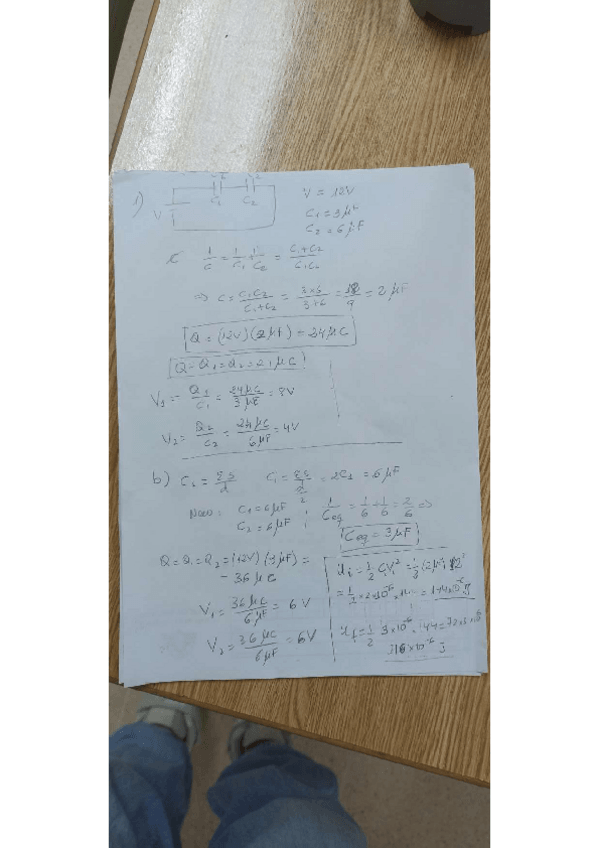 1)
V
C₁ C₂
V = 12V
C₁ = 3 μF
C₂ = 6 μF
1/C = 1/C₁ + 1/C₂ = C₁+C₂ / C₁C₂
⇒ C = C₁C₂ / C₁+C₂ = 3×6 / 3+6 = 18/9 = 2 μF
Q = (12V)(2μF) = 24μC
Q = Q₁ = Q₂ = 24μC
V₁ = Q₁/C₁ = 24μC/3μF = 8V
V₂ = Q₂/C₂ = 24μC/6μF = 4V
b) C₁ = εS/d C₁ = εS / d/2 = 2C₁ = 6μF
C₁ = 6μF ; 1/Ceq = 1/6 + 1/6 = 2/6 ⇒
C₂ = 6μF
Ceq = 3μF
Q = Q₁ = Q₂ = (12V)(3μF) =
= 36μC
V₁ = 36μC/6μF = 6V
V₂ = 36μC/6μF = 6V
= 1/2 × 2×10⁻⁶ × 144 = 144×10⁻⁶ J
= 1/2 3×10⁻⁶ · 144 = 72×3×10⁻⁶